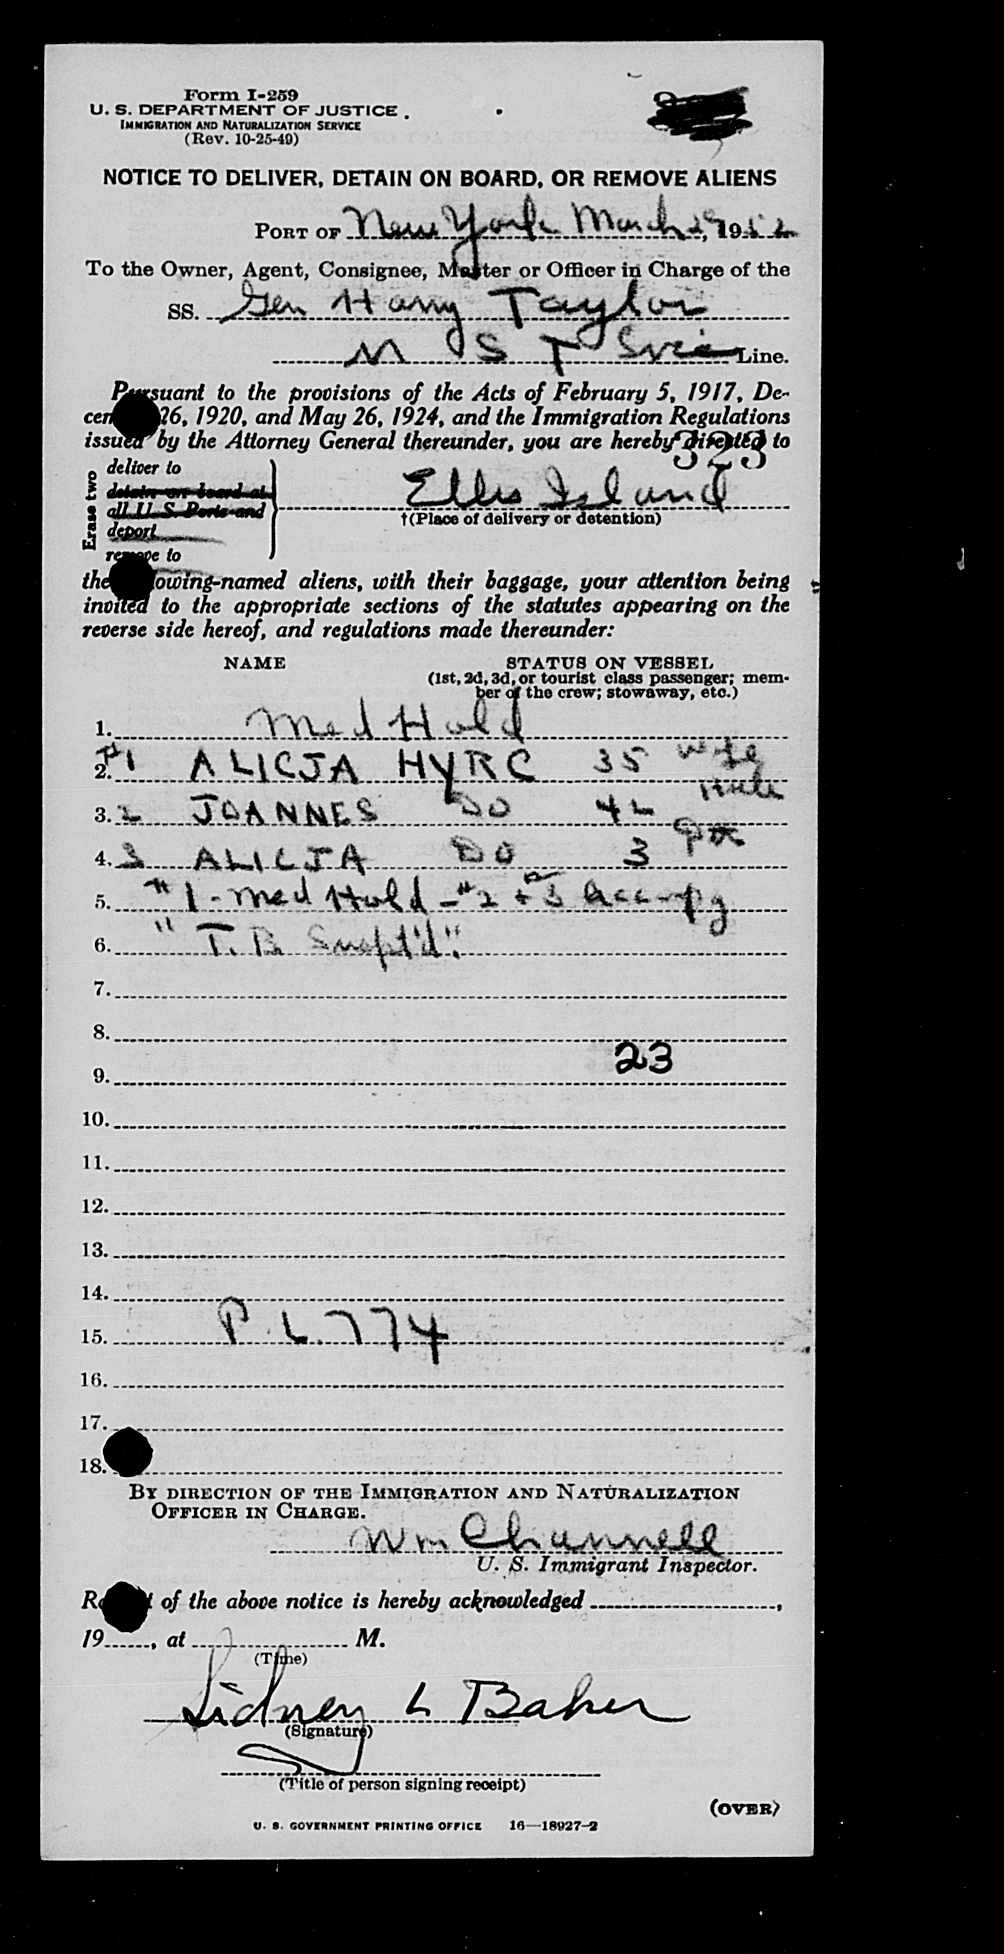 Form I-259
U. S. DEPARTMENT OF JUSTICE
IMMIGRATION AND NATURALIZATION SERVICE
(Rev. 10-25-49)
NOTICE TO DELIVER, DETAIN ON BOARD, OR REMOVE ALIENS
PORT OF New York March 1952
To the Owner, Agent, Consignee, Master or Officer in Charge of the
SS. Gen Harry Taylor
M S T Line.
Pursuant to the provisions of the Acts of February 5, 1917, De-
cem 26, 1920, and May 26, 1924, and the Immigration Regulations
issued by the Attorney General thereunder, you are hereby directed to
323
Erase two
deliver to
detain on board at
all U. S. Ports and
deport
remove to
Ellis Island
†(Place of delivery or detention)
the owing-named aliens, with their baggage, your attention being
invited to the appropriate sections of the statutes appearing on the
reverse side hereof, and regulations made thereunder:
NAME STATUS ON VESSEL
(1st, 2d, 3d, or tourist class passenger; mem-
ber of the crew; stowaway, etc.)
1. Med Hold
2. #1 ALICJA HYRC 35 Wife
3. 2 JOANNES DO 42
4. 3 ALICJA DO 3
5. #1 - Med Hold - #2 + 3 Accompg
6. "T. B. Suspt'd".
7.
8.
23
9.
10.
11.
12.
13.
14.
15. P. L. 774
16.
17.
18.
BY DIRECTION OF THE IMMIGRATION AND NATURALIZATION
OFFICER IN CHARGE.
Wm Channell
U. S. Immigrant Inspector.
R t of the above notice is hereby acknowledged ,
19 , at M.
(Time)
Sidney L Baker
(Signature)
(Title of person signing receipt)
(OVER)
U. S. GOVERNMENT PRINTING OFFICE 16—18927-2